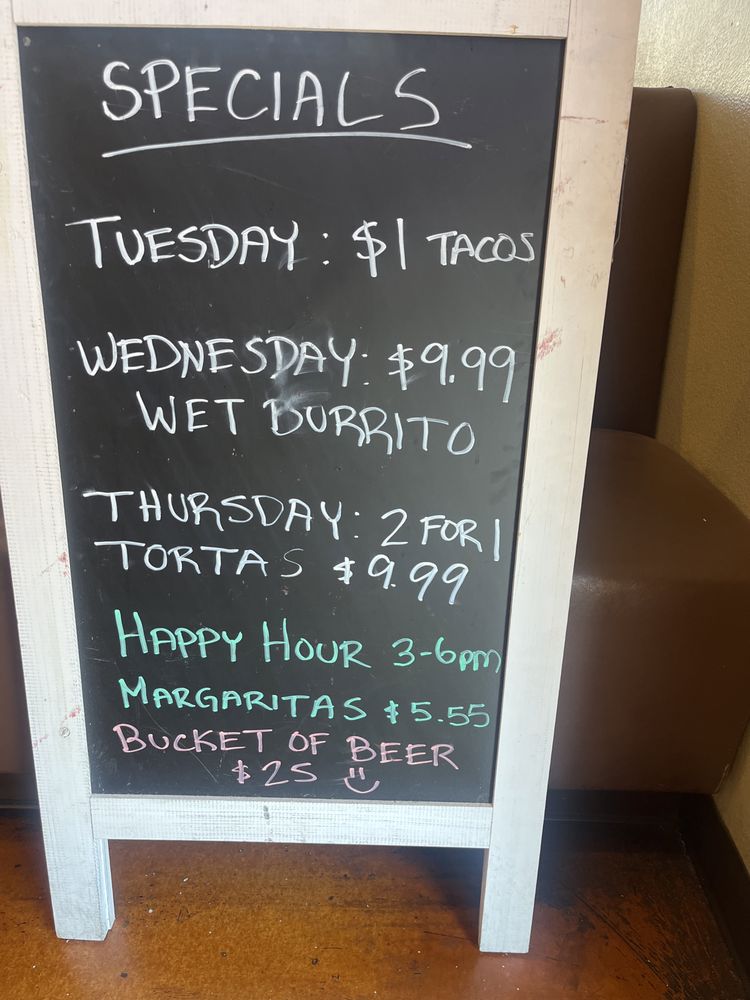 SPECIALS
TUESDAY: $1 TACOS
WEDNESDAY: $9.99
WET BURRITO
THURSDAY: 2 FOR 1
TORTAS $9.99
HAPPY HOUR 3-6pm
MARGARITAS $5.55
BUCKET OF BEER
$25